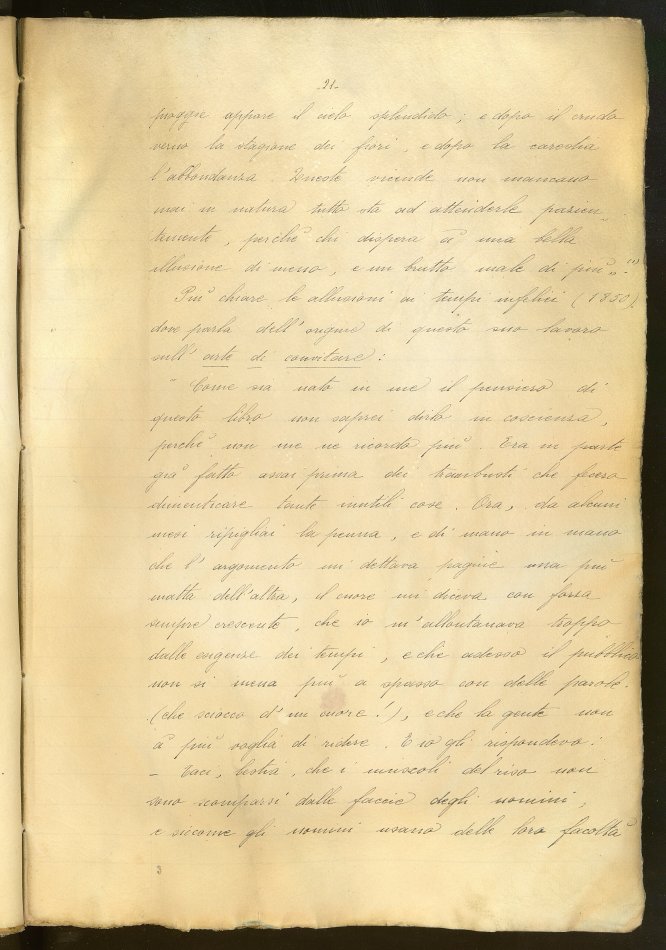 -21-
pioggie appare il cielo splendido; e dopo il crudo
verno la stagione dei fiori, e dopo la carestia
l'abbondanza. Queste vicende non mancano
mai in natura tutto sta ad attenderle pazien-
temente, perchè chi dispera à una bella
illusione di meno, e un brutto male di più„. (1)
Più chiare le allusioni ai tempi infelici (1850)
dove parla dell'origine di questo suo lavoro
sull'arte di convitare:
" Come sia nato in me il pensiero di
questo libro non saprei dirlo in coscienza,
perchè non me ne ricordo più. Era in parte
già fatto assai prima dei trambusti che fecero
dimenticare tante inutili cose. Ora, da alcuni
mesi ripigliai la penna, e di mano in mano
che l'argomento mi dettava pagine una più
matta dell'altra, il cuore mi diceva con forza
sempre crescente, che io m'allontanava troppo
dalle esigenze dei tempi, e che adesso il pubblico
non si mena più a spasso con delle parole.
(che sciocco d'un cuore!), e che la gente non
à più voglia di ridere. E io gli rispondevo:
- Taci, bestia, che i muscoli del riso non
sono scomparsi dalle faccie degli uomini,
e siccome gli uomini usano delle loro facoltà
3